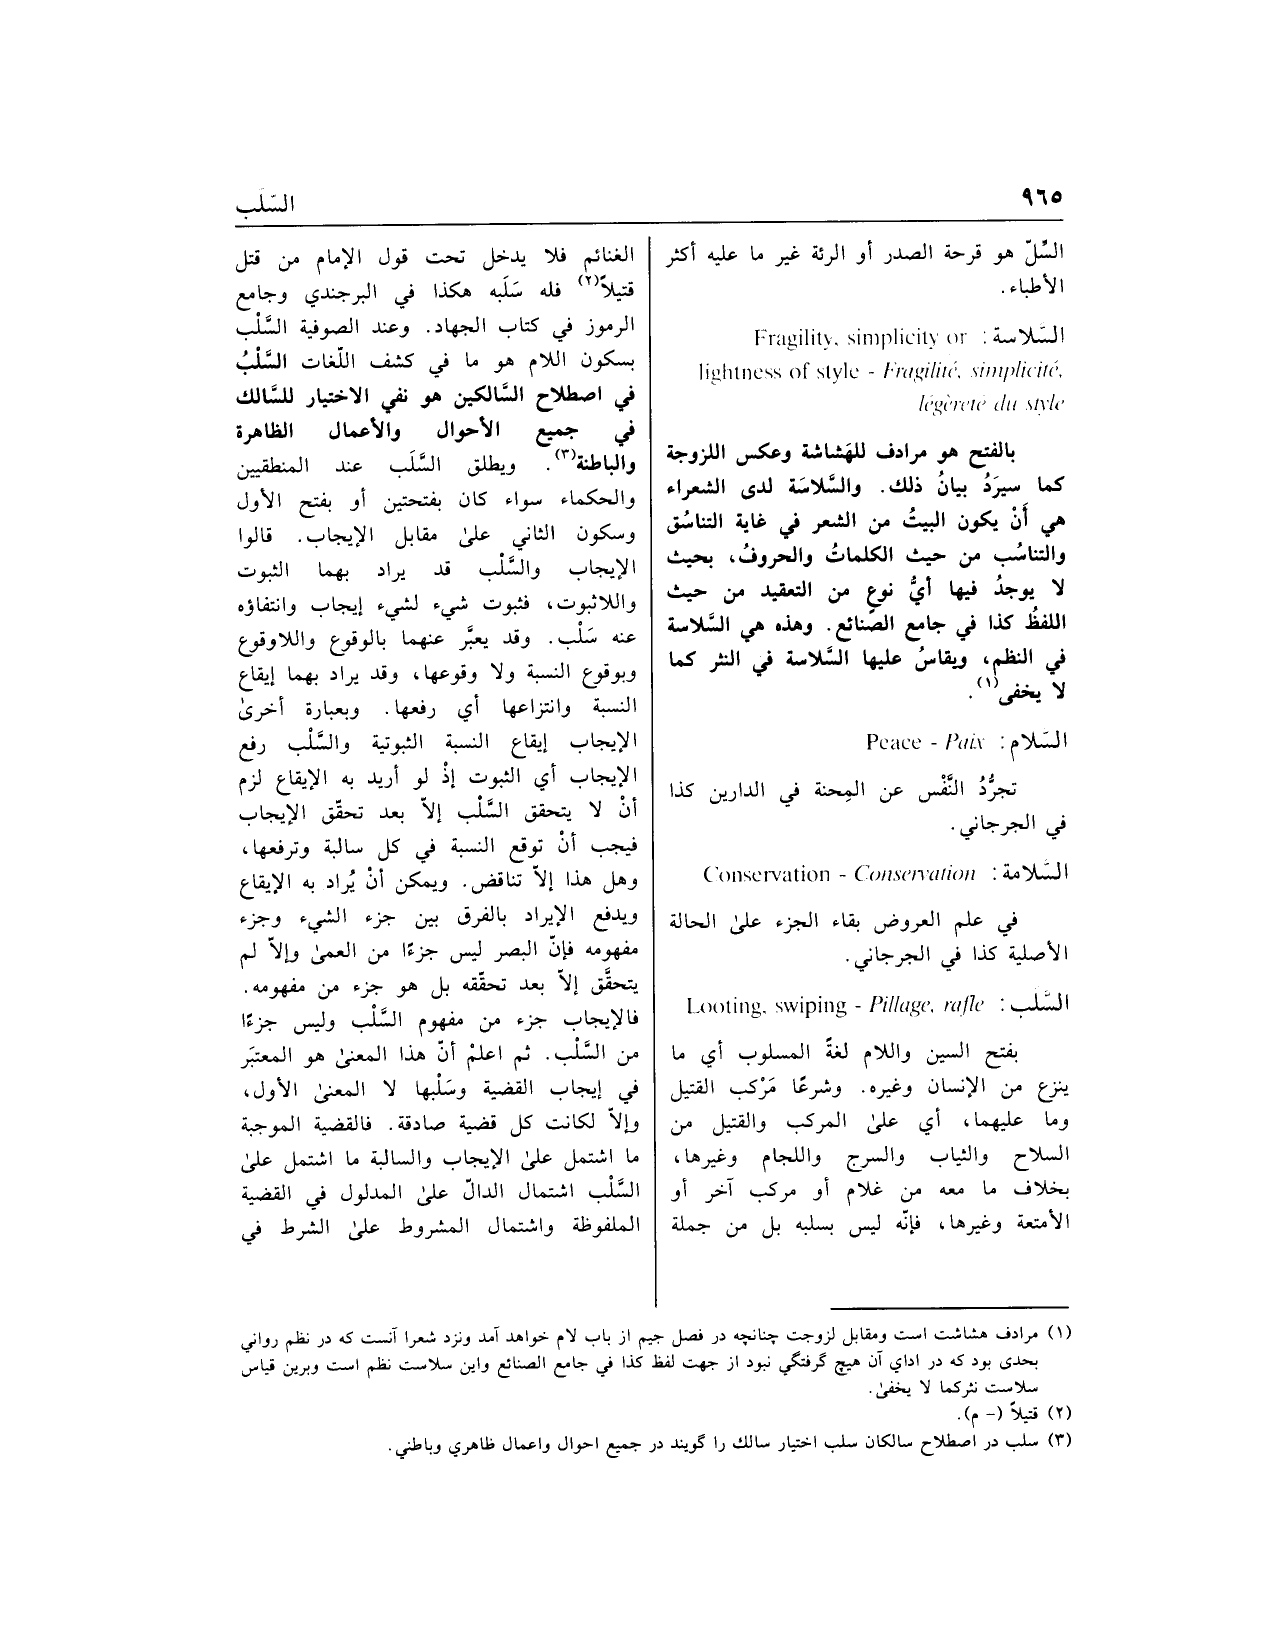 ٩٦٥
السَّلَب
السُّلّ هو قرحة الصدر أو الرئة غير ما عليه أكثر
الأطباء.
السّلاسة: Fragility, simplicity or
lightness of style - Fragilité, simplicité,
légèreté du style
بالفتح هو مرادف للهَشاشة وعكس اللزوجة
كما سيرَدُ بيانُ ذلك. والسَّلاسَة لدى الشعراء
هي أَنْ يكون البيتُ من الشعر في غاية التناسُق
والتناسُب من حيث الكلماتُ والحروفُ، بحيث
لا يوجدُ فيها أيُّ نوعٍ من التعقيد من حيث
اللفظُ كذا في جامع الصنائع. وهذه هي السَّلاسة
في النظم، ويقاسُ عليها السَّلاسة في النثر كما
لا يخفى(١).
السّلام: Peace - Paix
تجرُّدُ النَّفْس عن المِحنة في الدارين كذا
في الجرجاني.
السَّلامة: Conservation - Conservation
في علم العروض بقاء الجزء علىٰ الحالة
الأصلية كذا في الجرجاني.
السَّلب: Looting, swiping - Pillage, rafle
بفتح السين واللام لغةً المسلوب أي ما
ينزع من الإنسان وغيره. وشرعًا مَرْكب القتيل
وما عليهما، أي علىٰ المركب والقتيل من
السلاح والثياب والسرج واللجام وغيرها،
بخلاف ما معه من غلام أو مركب آخر أو
الأمتعة وغيرها، فإنّه ليس بسلبه بل من جملة
الغنائم فلا يدخل تحت قول الإمام من قتل
قتيلاً(٢) فله سَلَبه هكذا في البرجندي وجامع
الرموز في كتاب الجهاد. وعند الصوفية السَّلْب
بسكون اللام هو ما في كشف اللّغات السَّلْبُ
في اصطلاح السَّالكين هو نفي الاختيار للسَّالك
في جميع الأحوال والأعمال الظاهرة
والباطنة(٣). ويطلق السَّلَب عند المنطقيين
والحكماء سواء كان بفتحتين أو بفتح الأول
وسكون الثاني علىٰ مقابل الإيجاب. قالوا
الإيجاب والسَّلْب قد يراد بهما الثبوت
واللاثبوت، فثبوت شيء لشيء إيجاب وانتفاؤه
عنه سَلْب. وقد يعبَّر عنهما بالوقوع واللاوقوع
وبوقوع النسبة ولا وقوعها، وقد يراد بهما إيقاع
النسبة وانتزاعها أي رفعها. وبعبارة أخرىٰ
الإيجاب إيقاع النسبة الثبوتية والسَّلْب رفع
الإيجاب أي الثبوت إذْ لو أريد به الإيقاع لزم
أنْ لا يتحقق السَّلْب إلاّ بعد تحقّق الإيجاب
فيجب أنْ توقع النسبة في كل سالبة وترفعها،
وهل هذا إلاّ تناقض. ويمكن أنْ يُراد به الإيقاع
ويدفع الإيراد بالفرق بين جزء الشيء وجزء
مفهومه فإنّ البصر ليس جزءًا من العمىٰ وإلاّ لم
يتحقَّق إلاّ بعد تحقّقه بل هو جزء من مفهومه.
فالإيجاب جزء من مفهوم السَّلْب وليس جزءًا
من السَّلْب. ثم اعلمْ أنّ هذا المعنىٰ هو المعتبَر
في إيجاب القضية وسَلْبها لا المعنىٰ الأول،
وإلاّ لكانت كل قضية صادقة. فالقضية الموجبة
ما اشتمل علىٰ الإيجاب والسالبة ما اشتمل علىٰ
السَّلْب اشتمال الدالّ علىٰ المدلول في القضية
الملفوظة واشتمال المشروط علىٰ الشرط في
(١) مرادف هشاشت است ومقابل لزوجت چنانچه در فصل جيم از باب لام خواهد آمد ونزد شعرا آنست كه در نظم رواني
بحدى بود كه در اداي آن هيچ گرفتگي نبود از جهت لفظ كذا في جامع الصنائع واين سلاست نظم است وبرين قياس
سلاست نثركما لا يخفىٰ.
(٢) قتيلاً (- م).
(٣) سلب در اصطلاح سالكان سلب اختيار سالك را گويند در جميع احوال واعمال ظاهري وباطني.